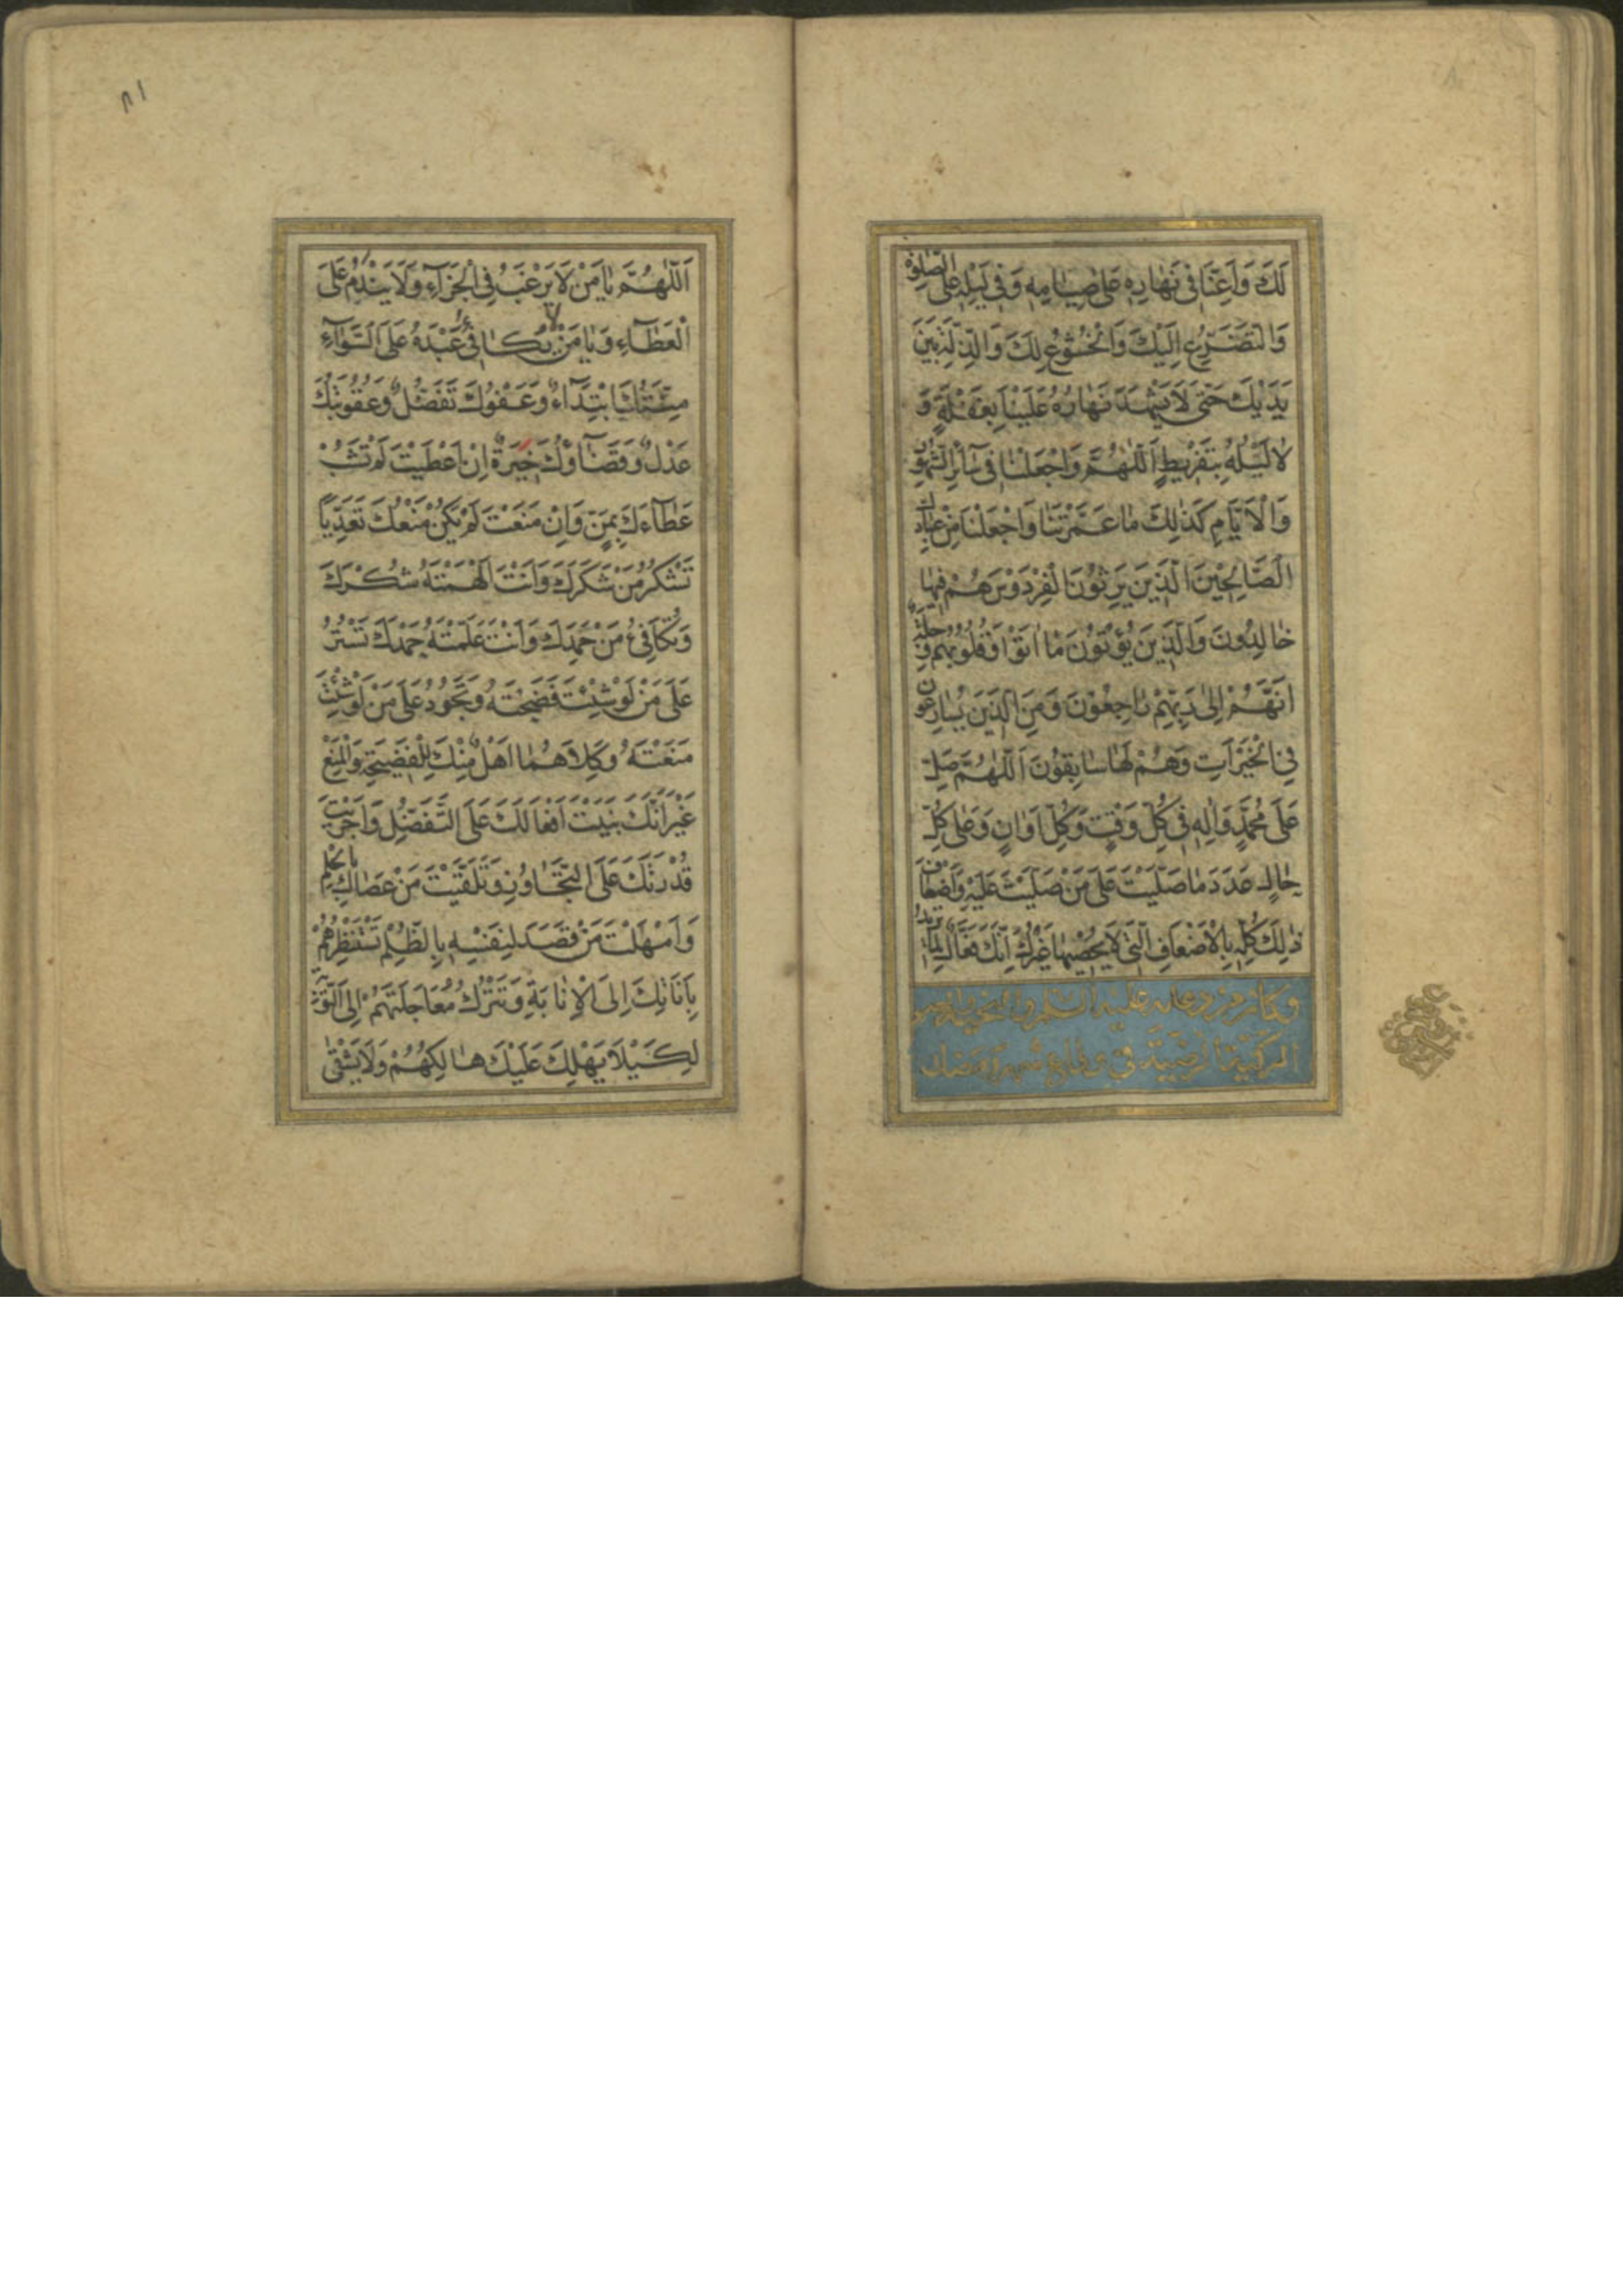 لَكَ وَاَعِنَّا فِي نَهَارِهِ عَلَى صِيَامِهِ وَفِي لَيْلِهِ عَلَى الصَّلٰوةِ
وَالتَّضَرُّعِ اِلَيْكَ وَالْخُشُوعِ لَكَ وَالذِّلَّةِ بَيْنَ
يَدَيْكَ حَتّٰى لَا يَشْهَدَ نَهَارُهُ عَلَيْنَا بِغَفْلَةٍ وَ
لَا لَيْلُهُ بِتَفْرِيطٍ اَللّٰهُمَّ وَاجْعَلْنَا فِي سَآئِرِ الشُّهُورِ
وَالْاَيَّامِ كَذٰلِكَ مَا عَمَّرْتَنَا وَاجْعَلْنَا مِنْ عِبَادِكَ
الصَّالِحِينَ الَّذِينَ يَرِثُونَ الْفِرْدَوْسَ هُمْ فِيهَا
خَالِدُونَ وَالَّذِينَ يُؤْتُونَ مَا اٰتَوْا وَقُلُوبُهُمْ وَجِلَةٌ
اَنَّهُمْ اِلٰى رَبِّهِمْ رَاجِعُونَ وَمِنَ الَّذِينَ يُسَارِعُونَ
فِي الْخَيْرَاتِ وَهُمْ لَهَا سَابِقُونَ اَللّٰهُمَّ صَلِّ
عَلَى مُحَمَّدٍ وَاٰلِهِ فِي كُلِّ وَقْتٍ وَكُلِّ اَوَانٍ وَعَلٰى كُلِّ
حَالٍ عَدَدَ مَا صَلَّيْتَ عَلَى مَنْ صَلَّيْتَ عَلَيْهِ وَاَضْعَافَ
ذٰلِكَ كُلِّهِ بِالْاَضْعَافِ الَّتِي لَا يُحْصِيهَا غَيْرُكَ اِنَّكَ فَعَّالٌ لِمَا تُرِيدُ
وكان من دعائه عليه السلم
الزكية الرضية في وداع شهر رمضان
اَللّٰهُمَّ يَا مَنْ لَا يَرْغَبُ فِي الْجَزَآءِ وَلَا يَنْدَمُ عَلَى
الْعَطَآءِ وَيَا مَنْ لَا يُكَافِئُ عَبْدَهُ عَلَى السَّوَآءِ
مِنَّتُكَ ابْتِدَآءٌ وَعَفْوُكَ تَفَضُّلٌ وَعُقُوبَتُكَ
عَدْلٌ وَقَضَآؤُكَ خِيَرَةٌ اِنْ اَعْطَيْتَ لَمْ تَشُبْ
عَطَآءَكَ بِمَنٍّ وَاِنْ مَنَعْتَ لَمْ يَكُنْ مَنْعُكَ تَعَدِّيًا
تَشْكُرُ مَنْ شَكَرَكَ وَاَنْتَ اَلْهَمْتَهُ شُكْرَكَ
وَتُكَافِئُ مَنْ حَمِدَكَ وَاَنْتَ عَلَّمْتَهُ حَمْدَكَ تَسْتُرُ
عَلَى مَنْ لَوْ شِئْتَ فَضَحْتَهُ وَتَجُودُ عَلَى مَنْ لَوْ شِئْتَ
مَنَعْتَهُ وَكِلَاهُمَا اَهْلٌ مِنْكَ لِلْفَضِيحَةِ وَالْمَنْعِ
غَيْرَ اَنَّكَ بَنَيْتَ اَفْعَالَكَ عَلَى التَّفَضُّلِ وَاَجْرَيْتَ
قُدْرَتَكَ عَلَى التَّجَاوُزِ وَتَلَقَّيْتَ مَنْ عَصَاكَ بِالْحِلْمِ
وَاَمْهَلْتَ مَنْ قَصَدَ لِنَفْسِهِ بِالظُّلْمِ تَسْتَنْظِرُهُمْ
بِاَنَاتِكَ اِلَى الْاِنَابَةِ وَتَتْرُكُ مُعَاجَلَتَهُمْ اِلَى التَّوْبَةِ
لِكَيْلَا يَهْلِكَ عَلَيْكَ هَالِكُهُمْ وَلَا يَشْقٰى